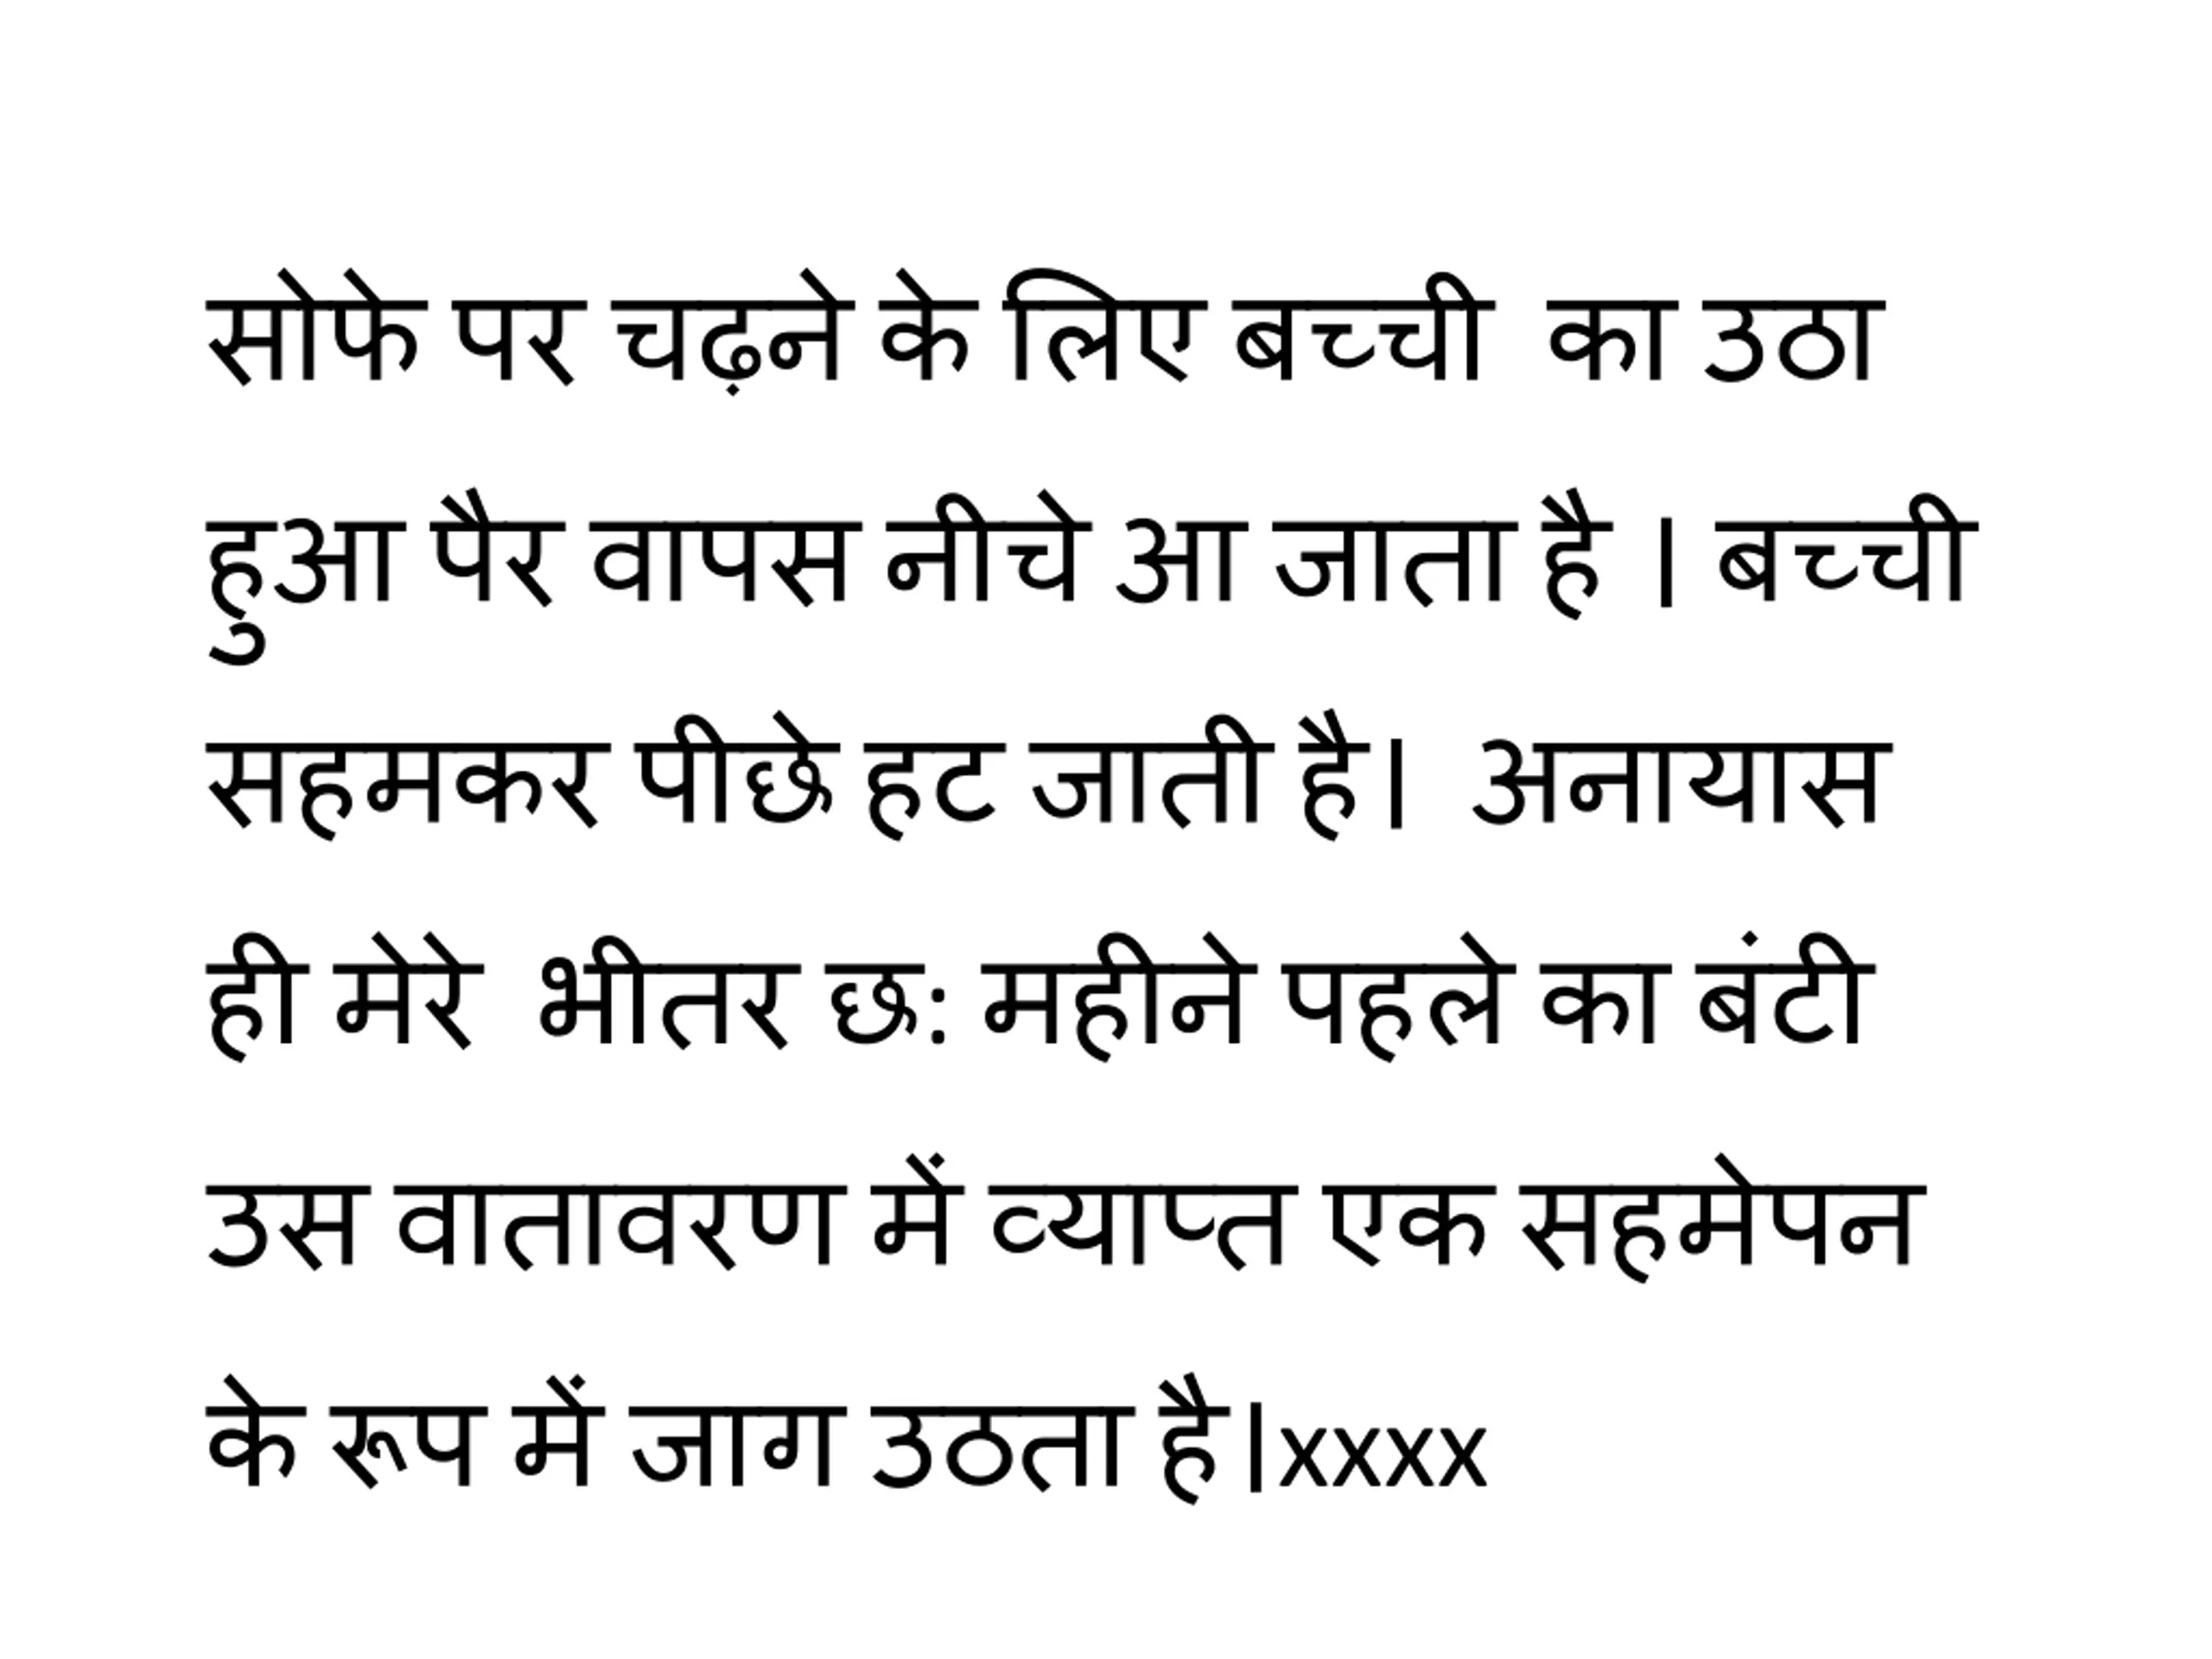 सोफे पर चढ़ने के लिए बच्ची  का उठा
हुआ पैर वापस नीचे आ जाता है । बच्ची
सहमकर पीछे हट जाती है।  अनायास
ही मेरे  भीतर छ: महीने पहले का बंटी
उस वातावरण में व्याप्त एक सहमेपन
के रूप में जाग उठता है।xxxx